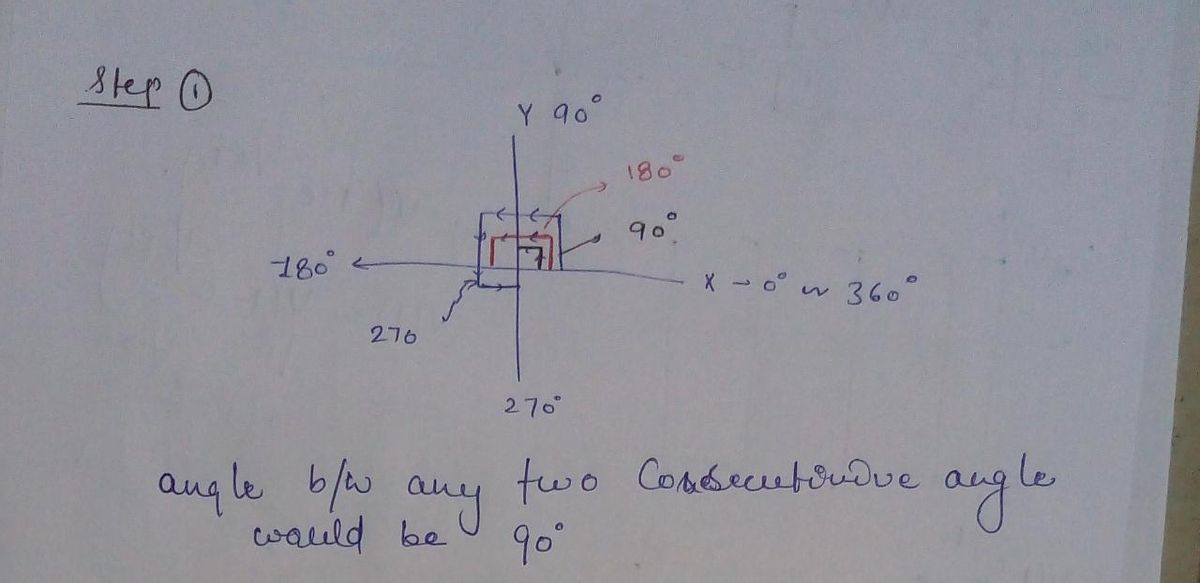 Step ①
Y 90°
180°
90°
180°
X → 0° ~ 360°
270
270°
angle b/w any two angle
would be 90°